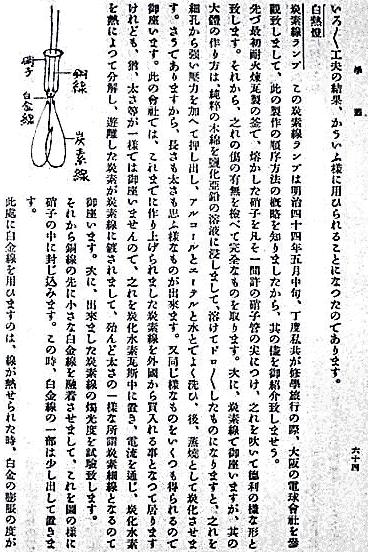 學藝
六十四
いろ〳〵工夫の結果、かういふ樣に用ひられることになつたのであります。
白熱燈
炭素線ランプ この炭素線ランプは明治四十四年五月中旬、丁度私共が修學旅行の際、大阪の電球會社を參
觀致しまして、此の製作の順序方法の槪略を知りましたから、其の儘を御紹介致しませう。
先づ最初耐火煉瓦製の釜で、熔かした硝子を凡そ一間許の硝子管の尖につけ、之れを吹いて德利の樣な形と
致します。それから、之れの傷の有無を檢べて完全なものを取ります。次に、炭素線で御座いますが、其の
大體の作り方は、純粹の木綿を鹽化亞鉛の溶液に浸しまして、溶けてドロ〳〵したものになりますと、之れを
細孔から强い壓力を加へて押し出し、アルコールとエーテルと水とでよく洗ひ、後、蒸燒として炭化させま
す。さうでありますから、長さも太さも思ふ樣なものが出來ます。又同じ樣なものをいくつも得られるので
御座います。此の會社では、これまでに作り上げられました炭素線を外國から買入れる事となつて居ります
けれども、猶、太さ等が一樣では御座いませんので、之れを炭化水素瓦斯中に置き、電流を通じ、炭化水素
を熱によつて分解し、遊離した炭素が炭素線に鍍されまして、殆んど太さの一樣な所謂炭素細線となるので
御座います。次に、出來ました炭素線の燭光度を試驗致します。
それから銅線の先に小さな白金線を融着させまして、これを圖の樣に
硝子の中に封じ込みます。この時、白金線の一部は少し出して置きま
す。
此處に白金線を用ひますのは、線が熱せられた時、白金の膨脹の度が
銅線
硝子
白金線
炭素線